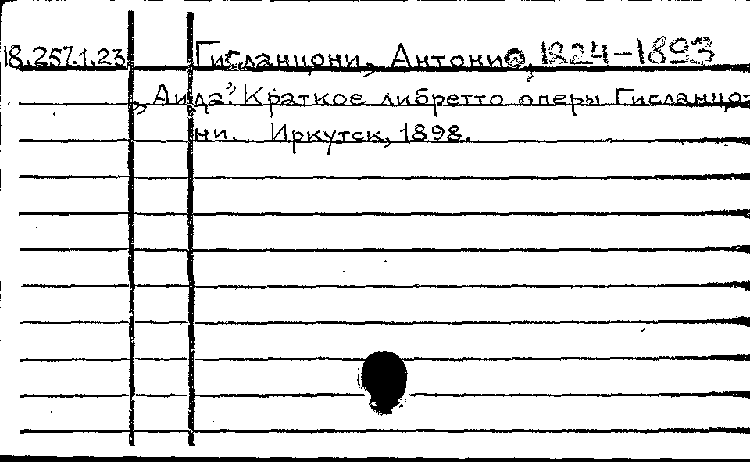 18.257.1.23 Гисланцони, Антонио, 1824-1893
„Аида". Краткое либретто оперы Гисланцо-
ни. Иркутск, 1898.